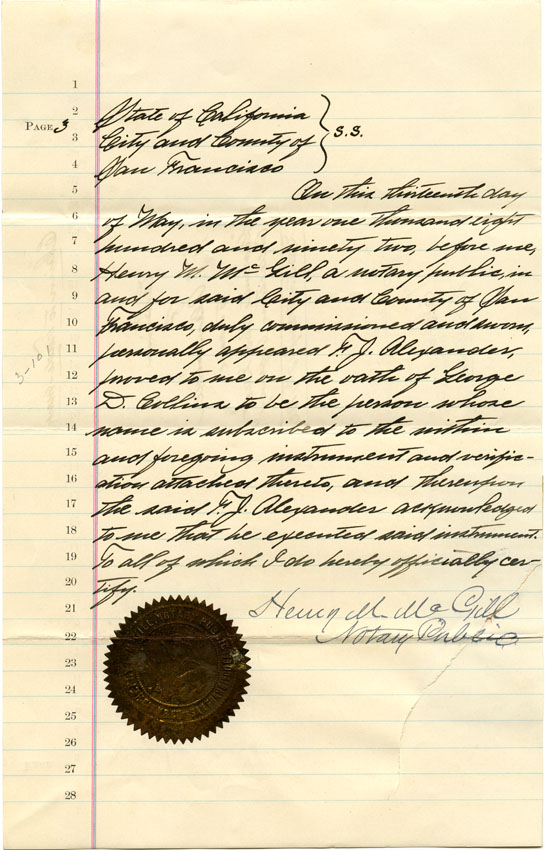 1
2 State of California
Page 3
3 City and County of } s.s.
4 San Francisco
5 On this thirteenth day
6 of May, in the year one thousand eight
7 hundred and ninety two, before me,
8 Henry M. McGill, a notary public, in
9 and for said City and County of San
10 Francisco, duly commissioned and sworn,
11 personally appeared F. J. Alexander,
12 proved to me on the oath of George
13 D. Collins to be the person whose
14 name is subscribed to the within
15 and foregoing instrument and verific-
16 ation attached thereto, and thereupon
17 the said F. J. Alexander acknowledged
18 to me that he executed said instrument.
19 To all of which I do hereby officially cer-
20 tify.
21 Henry M. McGill
22 Notary Public
23
24
25
26
27
28
3-101